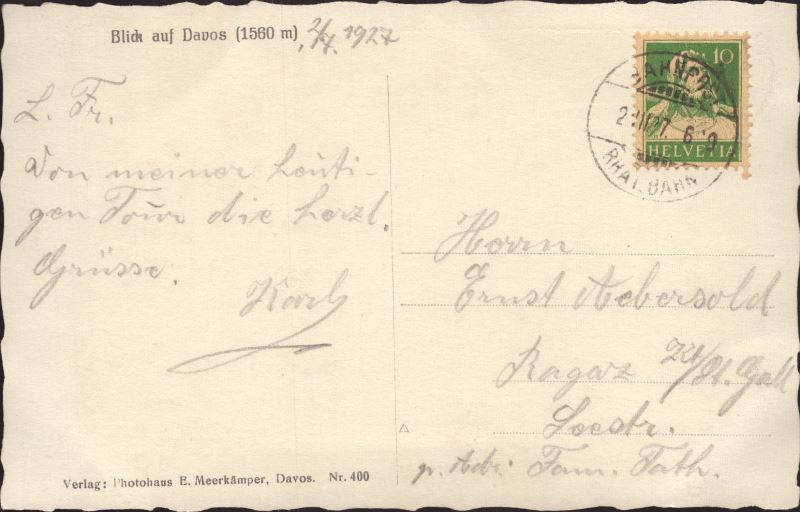 Blick auf Davos (1560 m) 2/4. 1927
L. Fr.
Von meiner heuti-
gen Tour die herzl.
Grüsse.
Karl
10
HELVETIA
BAHNPOST
RHÄT. BAHN
Herrn
Ernst Aebersold
Ragaz Kt/St. Gall
Seestr.
p. Adr. Fam. Fath.
Verlag: Photohaus E. Meerkämper, Davos. Nr. 400